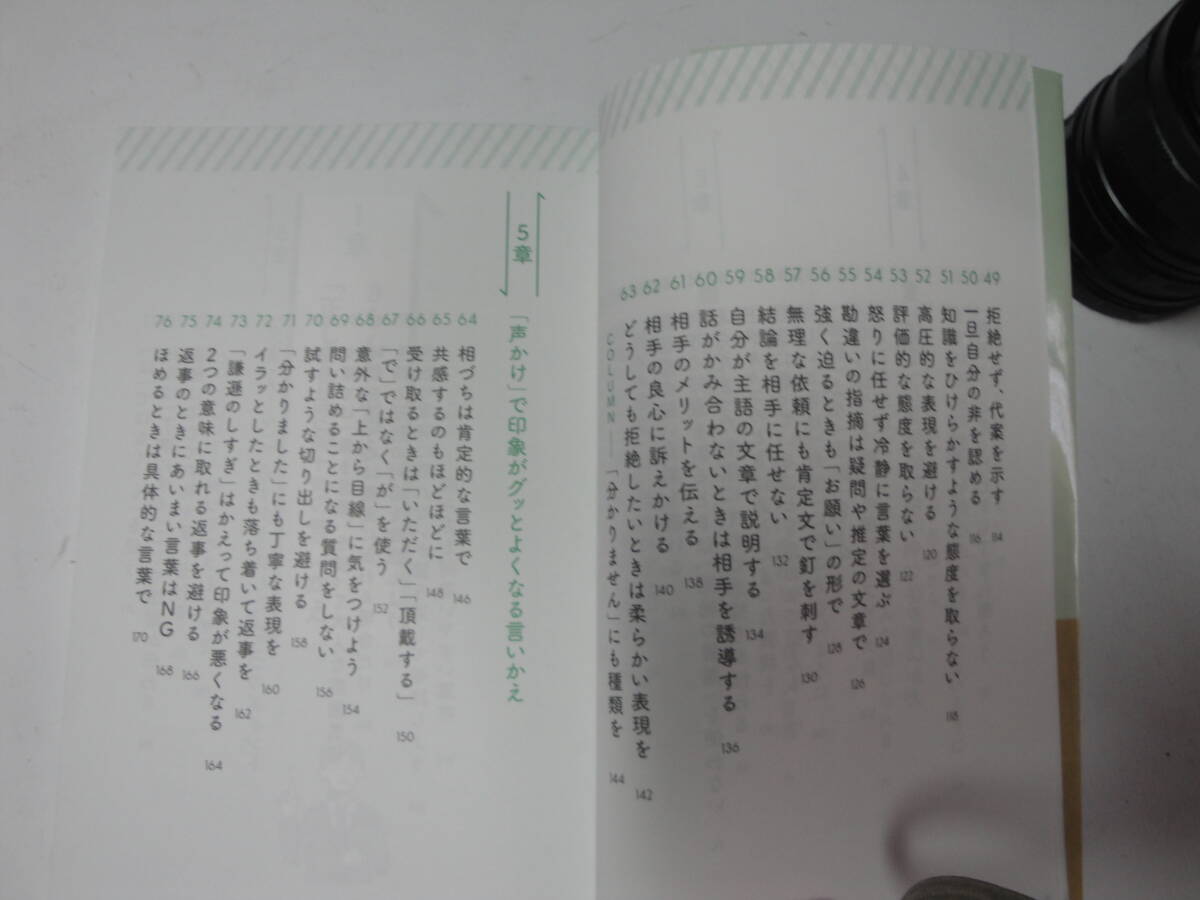 49 拒絶せず、代案を示す 114
50 一旦自分の非を認める 116
51 知識をひけらかすような態度を取らない 118
52 高圧的な表現を避ける 120
53 評価的な態度を取らない 122
54 怒りに任せず冷静に言葉を選ぶ 124
55 勘違いの指摘は疑問や推定の文章で 126
56 強く迫るときも「お願い」の形で 128
57 無理な依頼にも肯定文で釘を刺す 130
58 結論を相手に任せない 132
59 自分が主語の文章で説明する 134
60 話がかみ合わないときは相手を誘導する 136
61 相手のメリットを伝える 138
62 相手の良心に訴えかける 140
63 どうしても拒絶したいときは柔らかい表現を 142
COLUMN――「分かりません」にも種類を 144
5章 「声かけ」で印象がグッとよくなる言いかえ
64 相づちは肯定的な言葉で 146
65 共感するのもほどほどに 148
66 受け取るときは「いただく」「頂戴する」 150
67 「で」ではなく「が」を使う 152
68 意外な「上から目線」に気をつけよう 154
69 問い詰めることになる質問をしない 156
70 試すような切り出しを避ける 158
71 「分かりました」にも丁寧な表現を 160
72 イラッとしたときも落ち着いて返事を 162
73 「謙遜のしすぎ」はかえって印象が悪くなる 164
74 2つの意味に取れる返事を避ける 166
75 返事のときにあいまい言葉はNG 168
76 ほめるときは具体的な言葉で 170